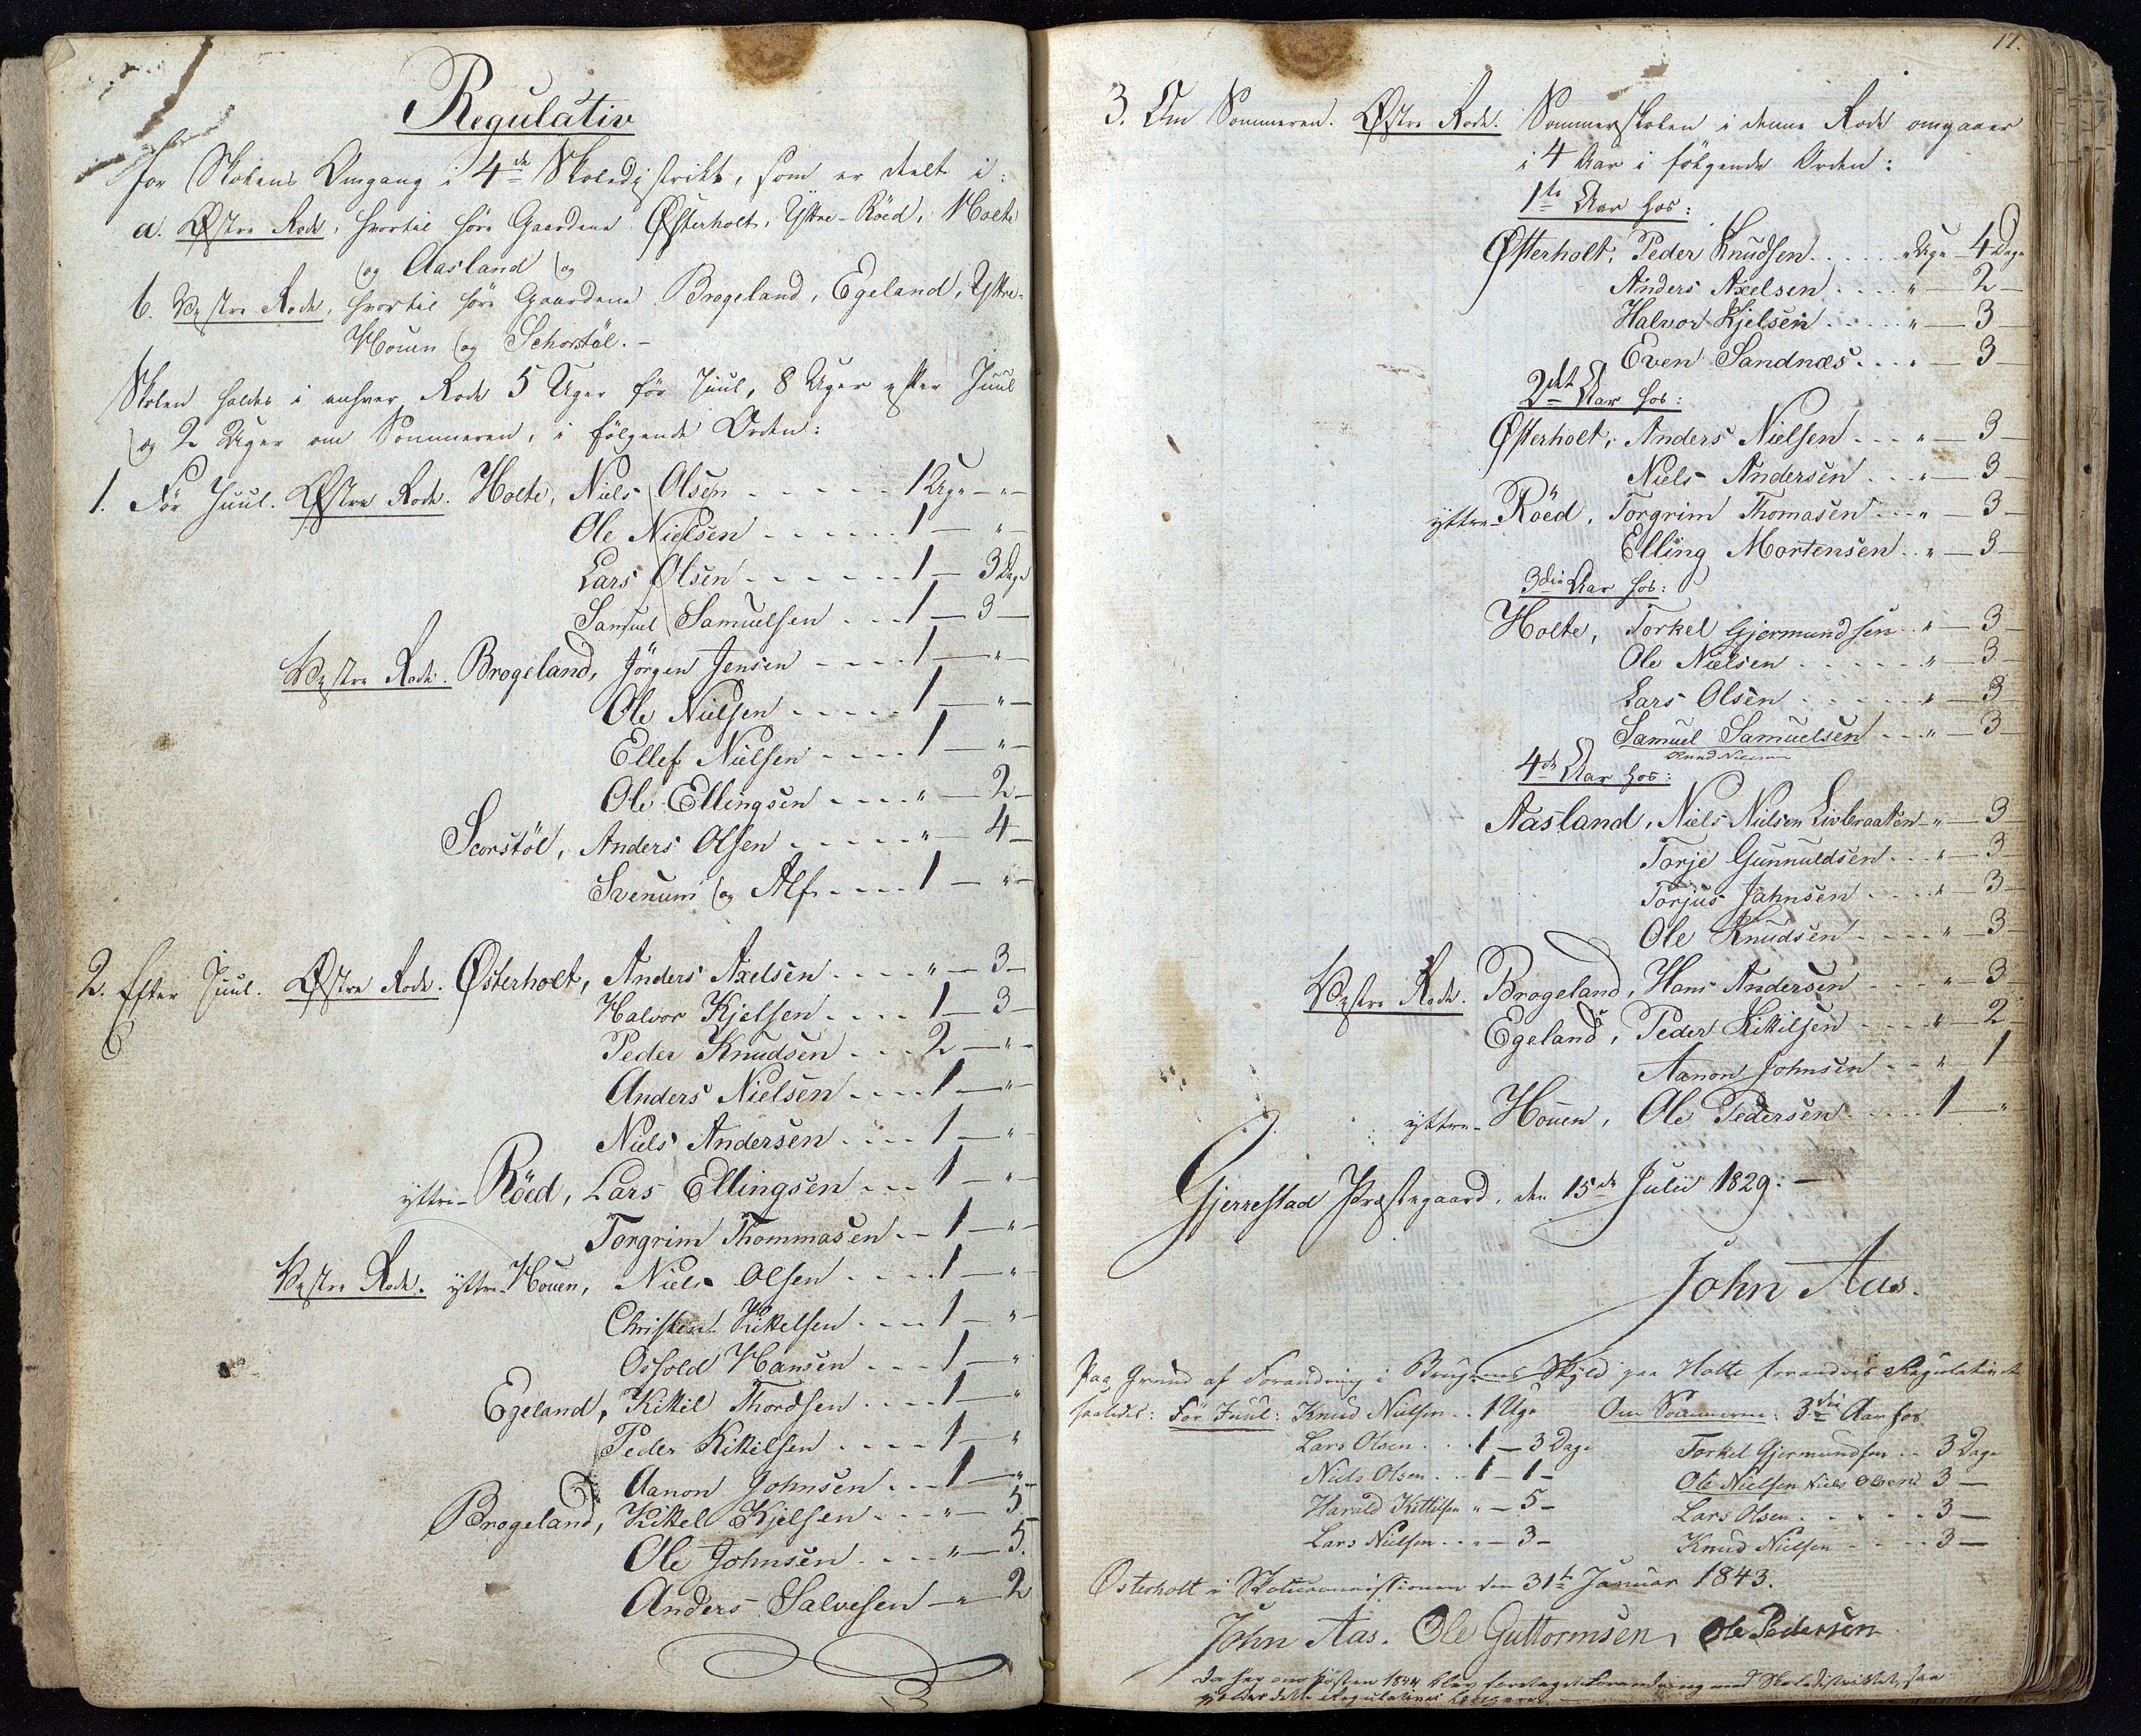 Regulativ
for Skolens Omgang i 4de Skoledistrikt, som er deelt i:
a. Østre Rode, hvortil höre Gaardene Østerholt, Yttre-Röed, Holte
og Aasland og
b. Vestre Rode, hvortil höre Gaardene Brogeland, Egeland, Yttre-
Houen og Schorstöl. -
Skolen holdes i enhver Rode 5 Uger för Juul, 8 Uger efter Juul
og 2 Uger om Sommeren, i fölgende Orden:
1. För Juul. Østre Rode. Holte, Niels Olsen - - - - - 1 Uge - " -
Ole Nielsen - - - - - - 1 - " -
Lars Olsen - - - - - - 1 - 3 Dage
Samuel Samuelsen - - - 1 - 3 -
Vestre Rode. Brogeland, Jörgen Jensen - - - - 1 - " -
Ole Nielsen - - - - - 1 - " -
Ellef Nielsen - - - - 1 - " -
Ole Ellingsen - - - - " - 2 -
Scorstöl, Anders Olsen - - - - - " - 4 -
Svenum og Alf - - - - 1 - " -
2. Efter Juul. Østre Rode. Østerholt, Anders Axelsen - - - - " - 3 -
Halvor Kjelsen - - - - 1 - 3 -
Peder Knudsen - - - 2 - " -
Anders Nielsen - - - - 1 - " -
Niels Andersen - - - - 1 - " -
yttre-Röed, Lars Ellingsen - - - 1 - " -
Torgrim Thommasen - - 1 - " -
Vestre Rode. yttre-Houen, Niels Olsen - - - - 1 - " -
Christen Kittelsen - - - 1 - " -
Osfold Hansen - - - 1 - " -
Egeland, Kittil Thordsen - - - - 1 - " -
Peder Kittilsen - - - - 1 - " -
Aanon Johnsen - - - 1 - " -
Brogeland, Kittel Kjelsen - - - " - 5
Ole Johnsen - - - - " - 5.
Anders Salvesen - " - 2
17.
3. Om Sommeren. Østre Rode. Sommerskolen i denne Rode omgaaer
i 4 Aar i fölgende Orden:
1te Aar hos:
Østerholt, Peder Knudsen - - - - - " Uge - 4 Dage
Anders Axelsen - - - - " - 2 -
Halvor Kjelsen - - - - - " - 3
Even Sandnæs - - - " - 3
2det Aar hos:
Østerholt, Anders Nielsen - - - " - 3 -
Niels Andersen - - - " - 3 -
yttre-Röed, Torgrim Thomasen - - - " - 3 -
Elling Mortensen - - " - 3 -
3die Aar hos:
Holte, Torkel Gjermundsen - " - 3 -
Ole Nielsen - - - - - " - 3 -
Lars Olsen - - - - - " - 3
Samuel Samuelsen - - - " - 3 -
Knud Nielsen
4de Aar hos:
Aasland, Niels Nielsen Livbraaten - " - 3
Torje Gunnuldsen - - - " - 3 -
Torjus Jahnsen - - - - " - 3 -
Ole Knudsen - - - - " - 3 -
Vestre Rode. Brogeland, Hans Andersen - - - " - 3
Egeland, Peder Kittilsen - - - - " - 2
Aanon Johnsen - - " - 1
yttre-Houen, Ole Pedersen - - - - 1 - "
Gjerrestad Præstegaard, den 15de Julii 1829. -
John Aas.
Paa Grund af Forandring i Brugenes Skyld paa Holte forandres Regulativet
saaledes: För Juul: Knud Nielsen - - 1 Uge Om Sommeren: 3die Aar hos
Lars Olsen - - - 1 - 3 Dage Torkel Gjermundsen - - 3 Dage
Niels Olsen - - - 1 - 1 - Ole Nielsen Niels Olsen 3 -
Harald Kittilsen " - 5 - Lars Olsen - - - - - - 3 -
Lars Nielsen - - " - 3 - Knud Nielsen - - - - 3 -
Osterholt i Skolecommissionen den 31te Januar 1843.
John Aas. Ole Guttormsen, Ole Pedersen
Da her om Hösten 1844 blev foretaget Forandring med Skoledistriktet, saa
gjelder dette Regulativ